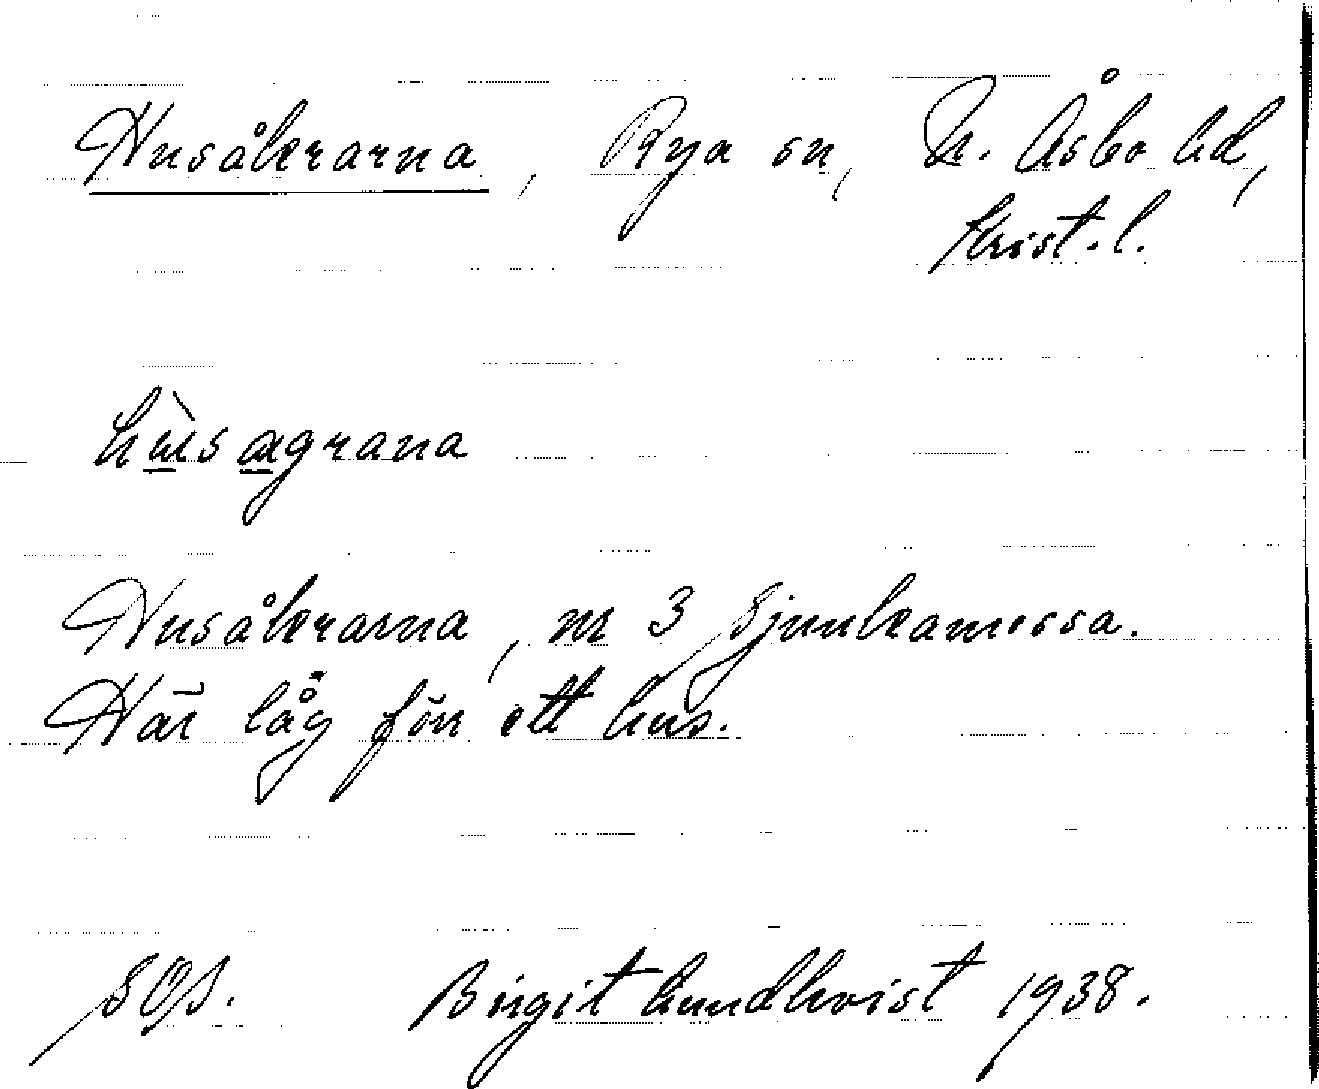 Husåkrarna, Rya sn, N. Åsbo hd,
Krist. l.
hùsagrana
Husåkrarna, nr 3 Sjunkamossa.
Här låg förr ett hus.
SOJ. Birgit Lundkvist 1938.